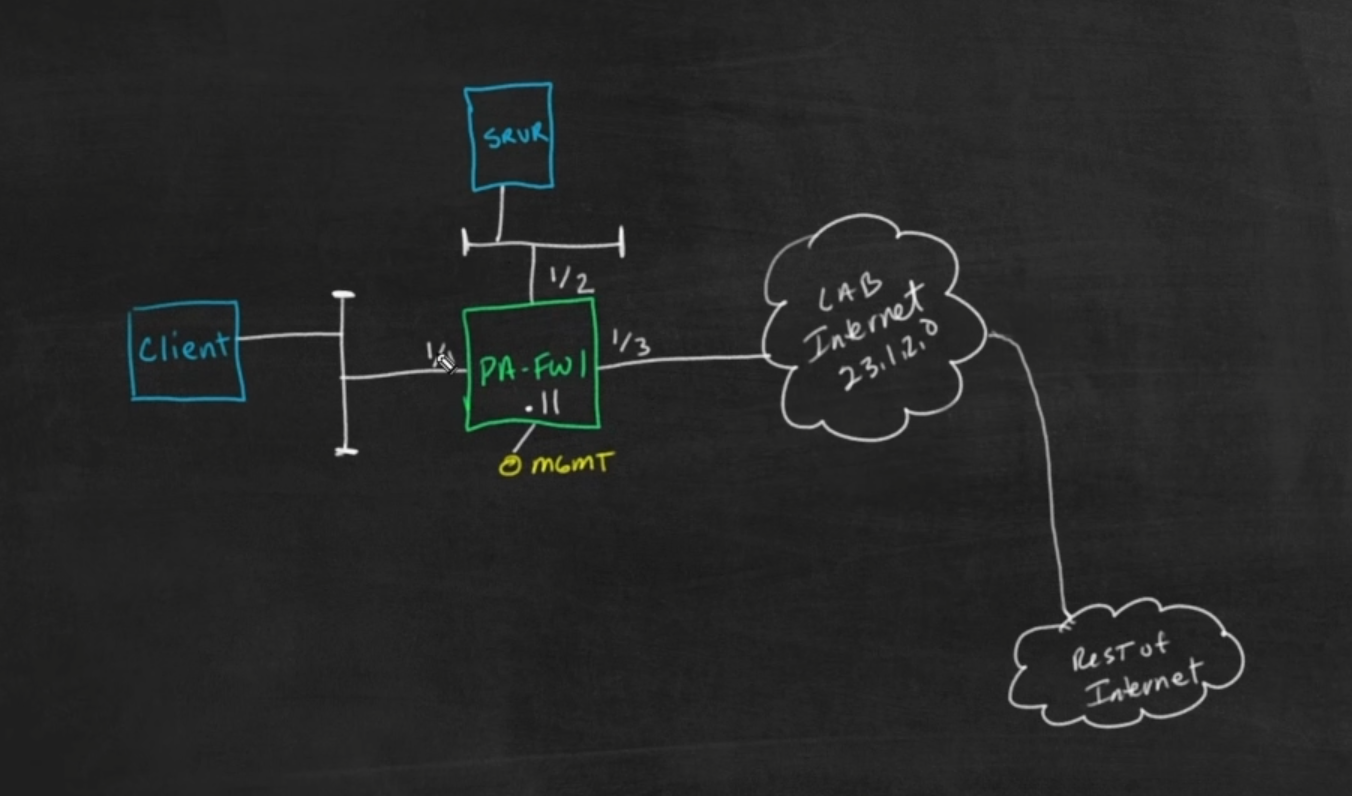 SRVR
1/2
Client
1/1
PA-FW1
.11
1/3
MGMT
LAB
Internet
23.1.2.0
Rest of
Internet